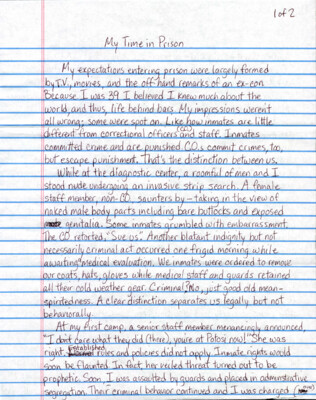 1 of 2
My Time in Prison
My expectations entering prison were largely formed
by T.V., movies, and the off hand remarks of an ex-con
Because I was 39 I believed I knew much about the
world, and thus, life behind bars. My impressions weren't
all wrong; some were spot on. Like how inmates are little
different from correctional officers (CO) and staff. Inmates
committed crime and are punished. COs commit crimes, too,
but escape punishment. That's the distinction between us.
While at the diagnostic center, a roomful of men and I
stood nude undergoing an invasive strip search. A female
staff member, non-CO, saunters by - taking in the view of
naked male body parts including bare buttocks and exposed
genitalia. Some inmates grumbled with embarrassment.
The CO retorted, "Sue us". Another blatant indignity but not
necessarily criminal act occurred one frigid morning while
awaiting medical evaluation. We inmates were ordered to remove
our coats, hats, gloves while medical staff and guards retained
all their cold weather gear. Criminal? No, just good old mean-
spiritedness. A clear distinction separates us legally but not
behaviorally.
At my first camp, a senior staff member menancingly announced,
"I don't care what they did (there), you're at Potosi now!" She was
right. Established rules and policies did not apply. Inmate rights would
soon be flaunted. In fact, her veiled threat turned out to be
prophetic. Soon, I was assaulted by guards and placed in administrative
segregation. Their criminal behavior continued and I was charged